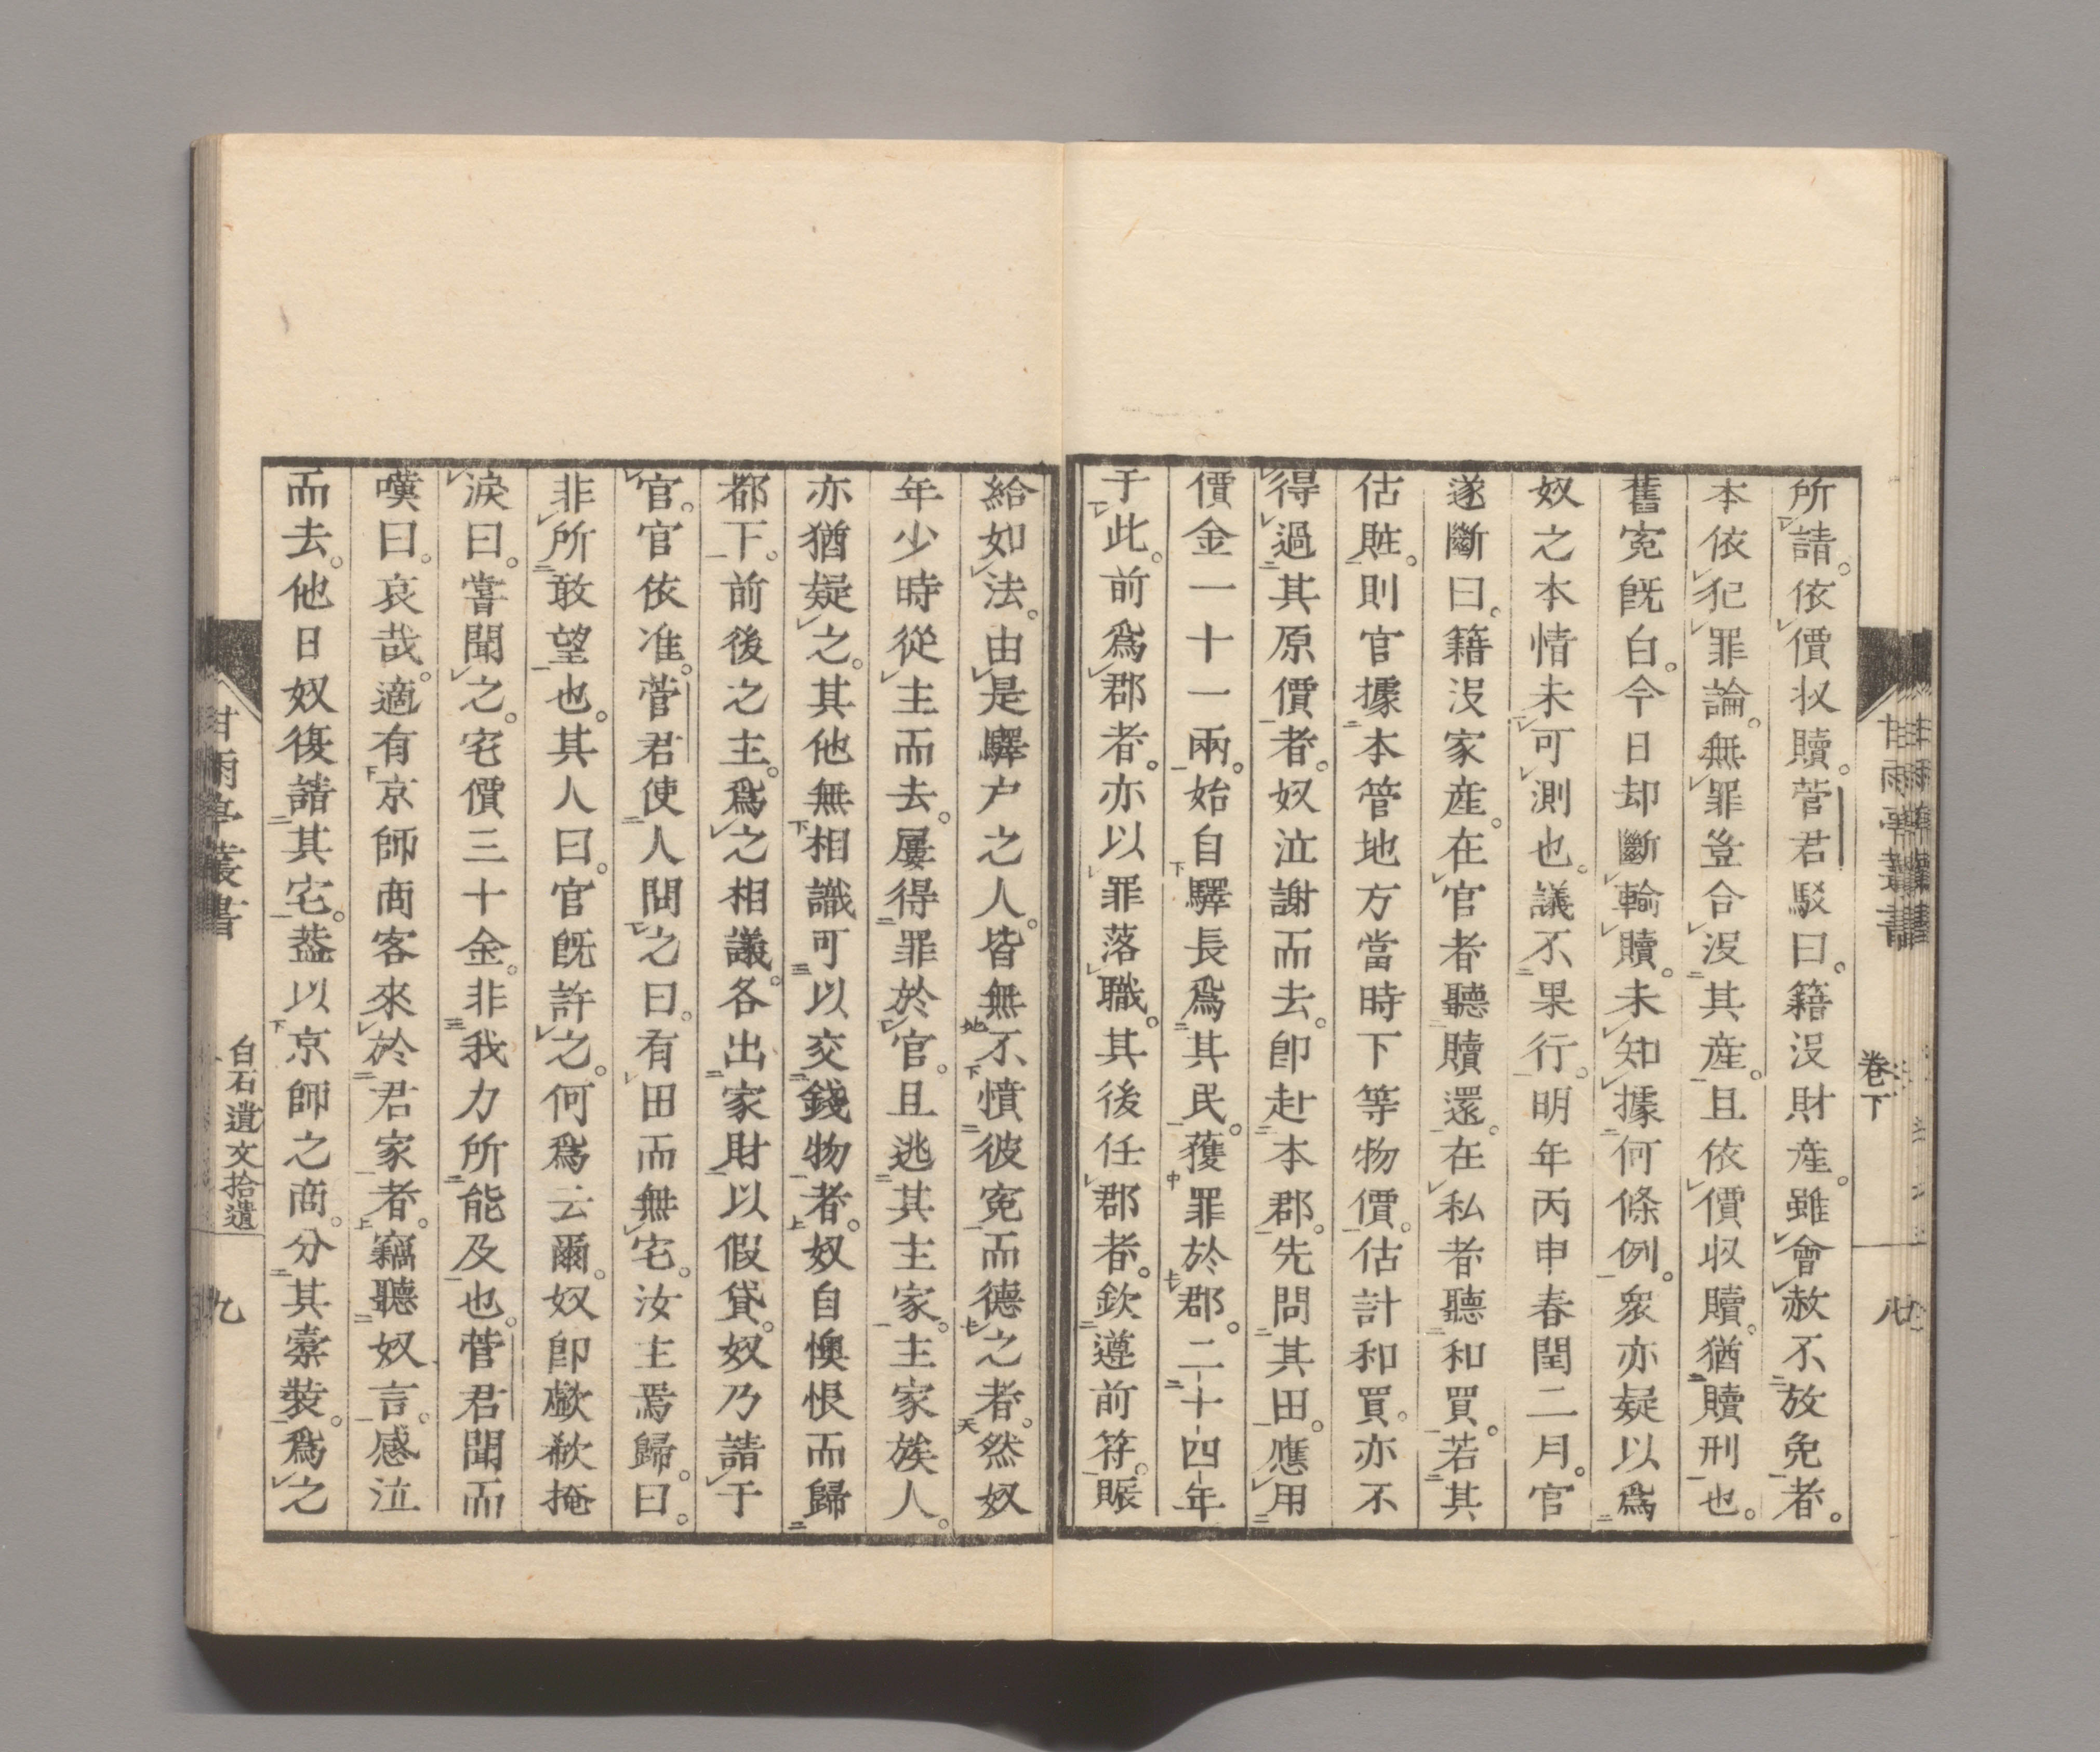 甘雨亭叢書
卷下
八
所請。依價收贖。菅君駁曰。籍沒財産。雖會赦不放免者。
本依犯罪論。無罪豈合沒其産。且依價收贖。猶贖刑也。
舊冤既白。今日却斷輸贖。未知據何條例。衆亦疑以爲
奴之本情未可測也。議不果行。明年丙申春閏二月。官
遂斷曰。籍沒家産。在官者聽贖還。在私者聽和買。若其
估賍。則官據本管地方當時下等物價。估計和買。亦不
得過其原價者。奴泣謝而去。即赴本郡。先問其田。應用
價金一十一兩。始自驛長爲其民。獲罪於郡。二十四年
于此。前爲郡者。亦以罪落職。其後任郡者。欽遵前符。賑
給如法。由是驛戸之人。皆無不憤彼冤而德之者。然奴
年少時從主而去。屢得罪於官。且逃其主家。主家族人。
亦猶疑之。其他無相識可以交錢物者。奴自懊恨而歸
都下。前後之主。爲之相議。各出家財以假貸。奴乃請于
官。官依准。菅君使人問之曰。有田而無宅。汝主焉歸。曰。
非所敢望也。其人曰。官既許之。何爲云爾。奴即歔欷掩
淚曰。嘗聞之。宅價三十金。非我力所能及也。菅君聞而
嘆曰。哀哉。適有京師商客來於君家者。竊聽奴言。感泣
而去。他日奴復請其宅。葢以京師之商。分其橐裝。爲之
甘雨亭叢書
白石遺文拾遺
九